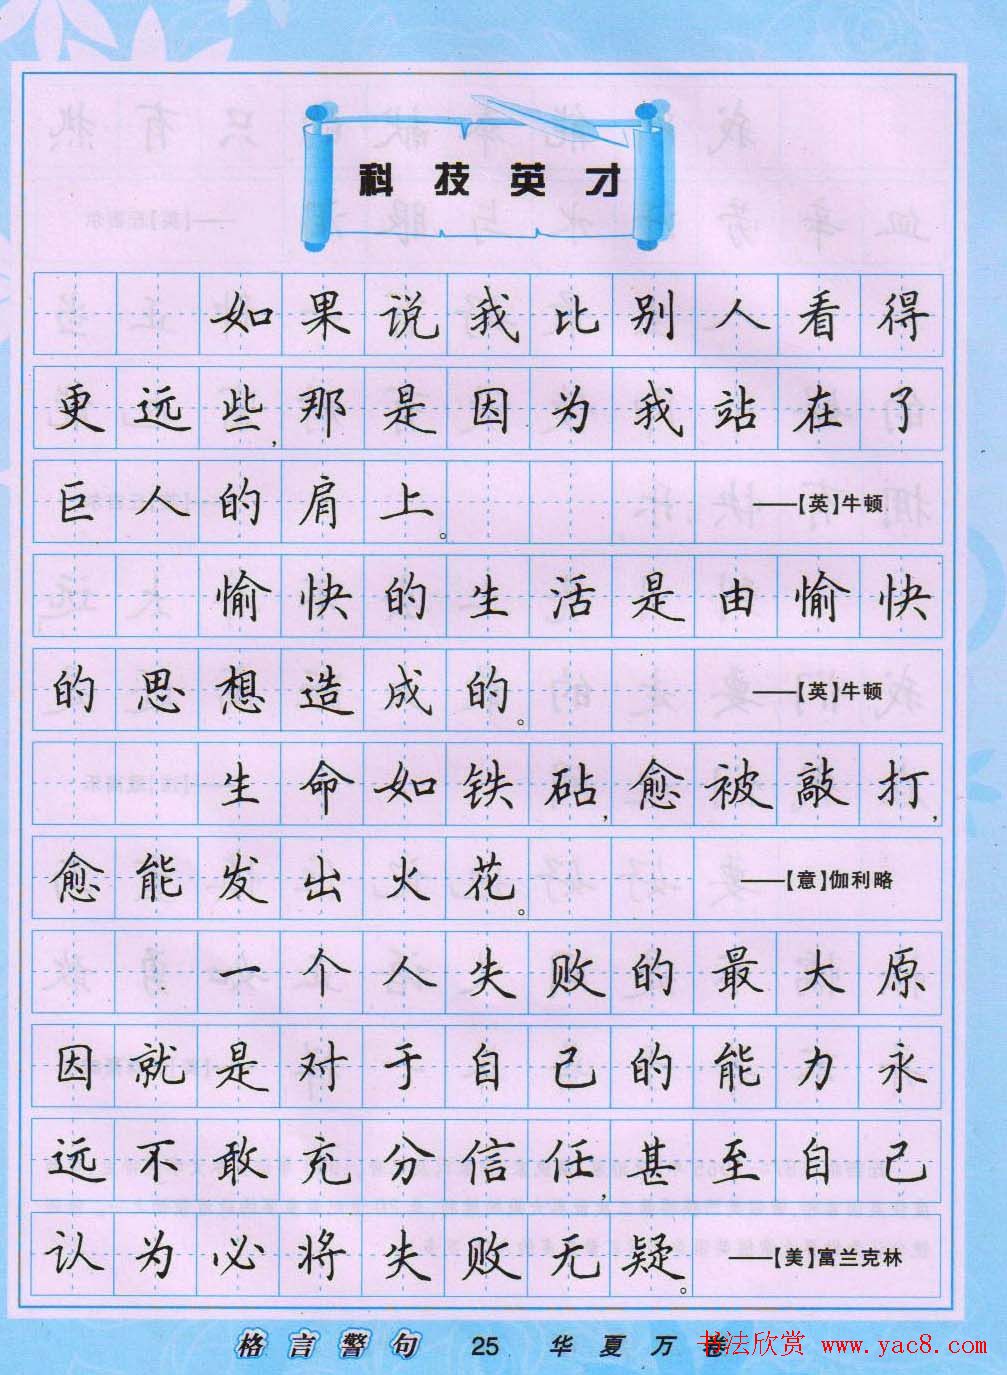 科技英才
如果说我比别人看得
更远些,那是因为我站在了
巨人的肩上。 ——[英]牛顿
愉快的生活是由愉快
的思想造成的。 ——[英]牛顿
生命如铁砧,愈被敲打,
愈能发出火花。 ——[意]伽利略
一个人失败的最大原
因就是对于自己的能力永
远不敢充分信任,甚至自己
认为必将失败无疑。 ——[美]富兰克林
格言警句 25 华夏万卷
书法欣赏 www.yac8.com